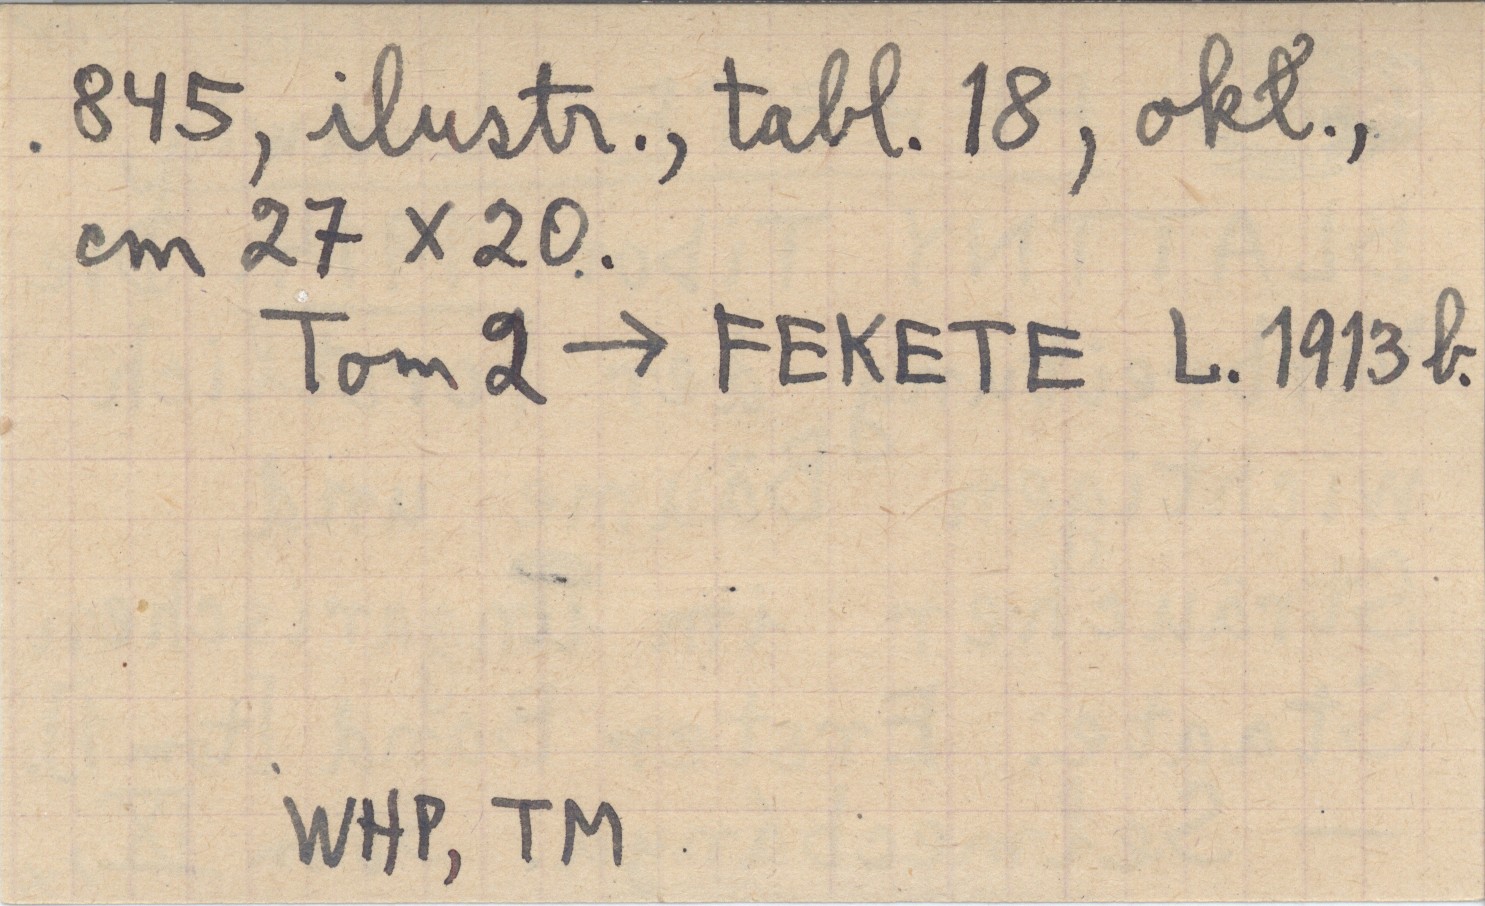 . 845, ilustr., tabl. 18, okł.,
cm 27 x 20.
Tom 2 → FEKETE L. 1913 b.
WHP, TM